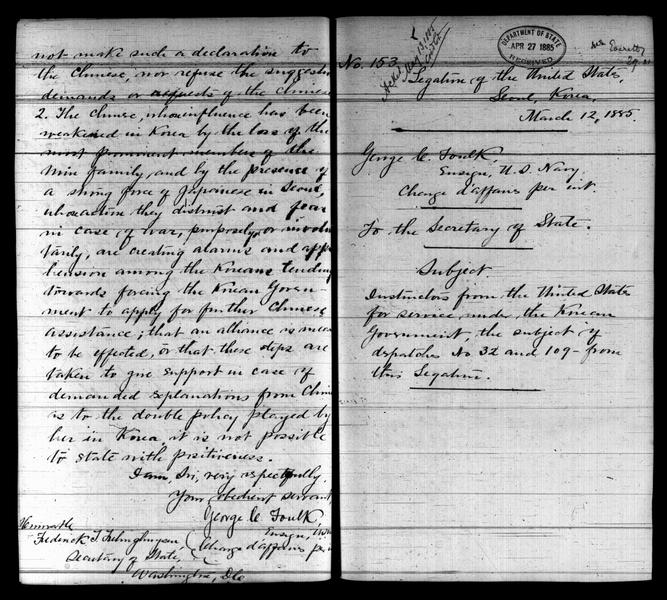 not make such a declaration to
the Chinese, nor refuse the suggestive
demands or affects of the Chinese
2. The Chinese, whose influence has been
weakened in Korea by the loss of the
most prominent members of the
Min family, and by the presence of
a strong force of Japanese in Seoul,
whose action they distrust and fear
in case of war, purposely, or involun
tarily, are creating alarms and appre
hension among the Koreans tending
towards forcing the Korean Govern-
ment to apply for further Chinese
assistance; that an alliance is meant
to be effected, or that these steps are
taken to give support in case of
demanded explanations from China
as to the double policy played by
her in Korea, it is not possible
to state with positiveness.
I am, Sir, very respectfully,
Your obedient servant
George C. Foulk,
Ensign, U.S.N.
Chargé d'affaires p.
Honorable
Frederick T. Frelinghuysen
Secretary of State,
Washington, D.C.
No. 153
Ackd May 13, 1885
DEPARTMENT OF STATE
APR 27 1885
RECEIVED
Legation of the United States,
Seoul, Korea,
March 12, 1885.
George C. Foulk,
Ensign, U.S. Navy.
Chargé d'affaires per int.
To the Secretary of State.
Subject
Instructors from the United States
for service under the Korean
Government, the subject of
dispatches No 32 and 109 - from
this Legation.